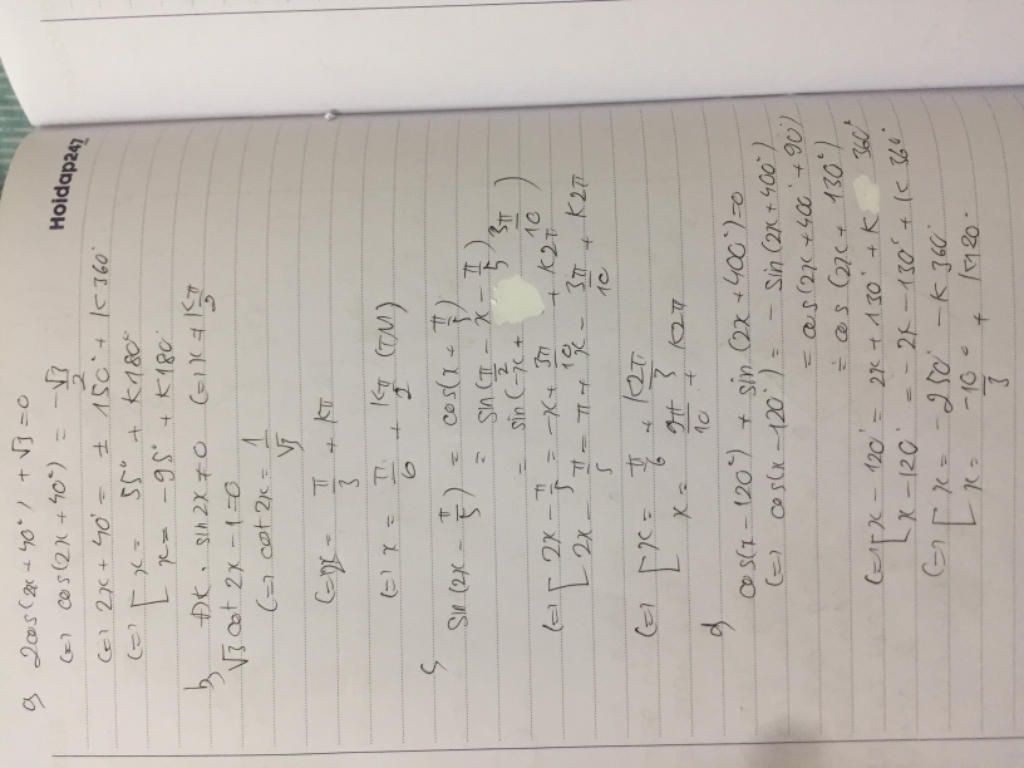 Hoidap247
a) 2cos(2x+40°) + √3 = 0
(=) cos(2x+40°) = -√3/2
(=) 2x+40° = ± 150° + k360°
(=) [ x = 55° + k180°
x = -95° + k180°
b) ĐK: sin2x ≠ 0 (=) x ≠ kπ/2
√3 cot 2x - 1 = 0
(=) cot 2x = 1/√3
(=) 2x = π/3 + kπ
(=) x = π/6 + kπ/2 (TM)
c)
sin(2x - π/5) = cos(x + π/5)
= sin(π/2 - x - π/5)
= sin(-x + 3π/10)
(=) [ 2x - π/5 = -x + 3π/10 + k2π
2x - π/5 = π + x - 3π/10 + k2π
(=) [ x = π/6 + k2π/3
x = 9π/10 + k2π
d)
cos(x-120°) + sin(2x+400°) = 0
(=) cos(x-120°) = - sin(2x+400°)
= cos(2x+400°+90°)
= cos(2x+130°)
(=) [ x - 120° = 2x + 130° + k 360°
x - 120° = -2x - 130° + k 360°
(=) [ x = -250° - k 360°
x = -10°/3 + k120°